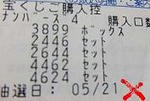 宝くじご購入控
ナンバーズ4 購入口数
3899 ボックス
2446 セット
4462 セット
2644 セット
4624 セット
4462 セット
抽選日: 05/21